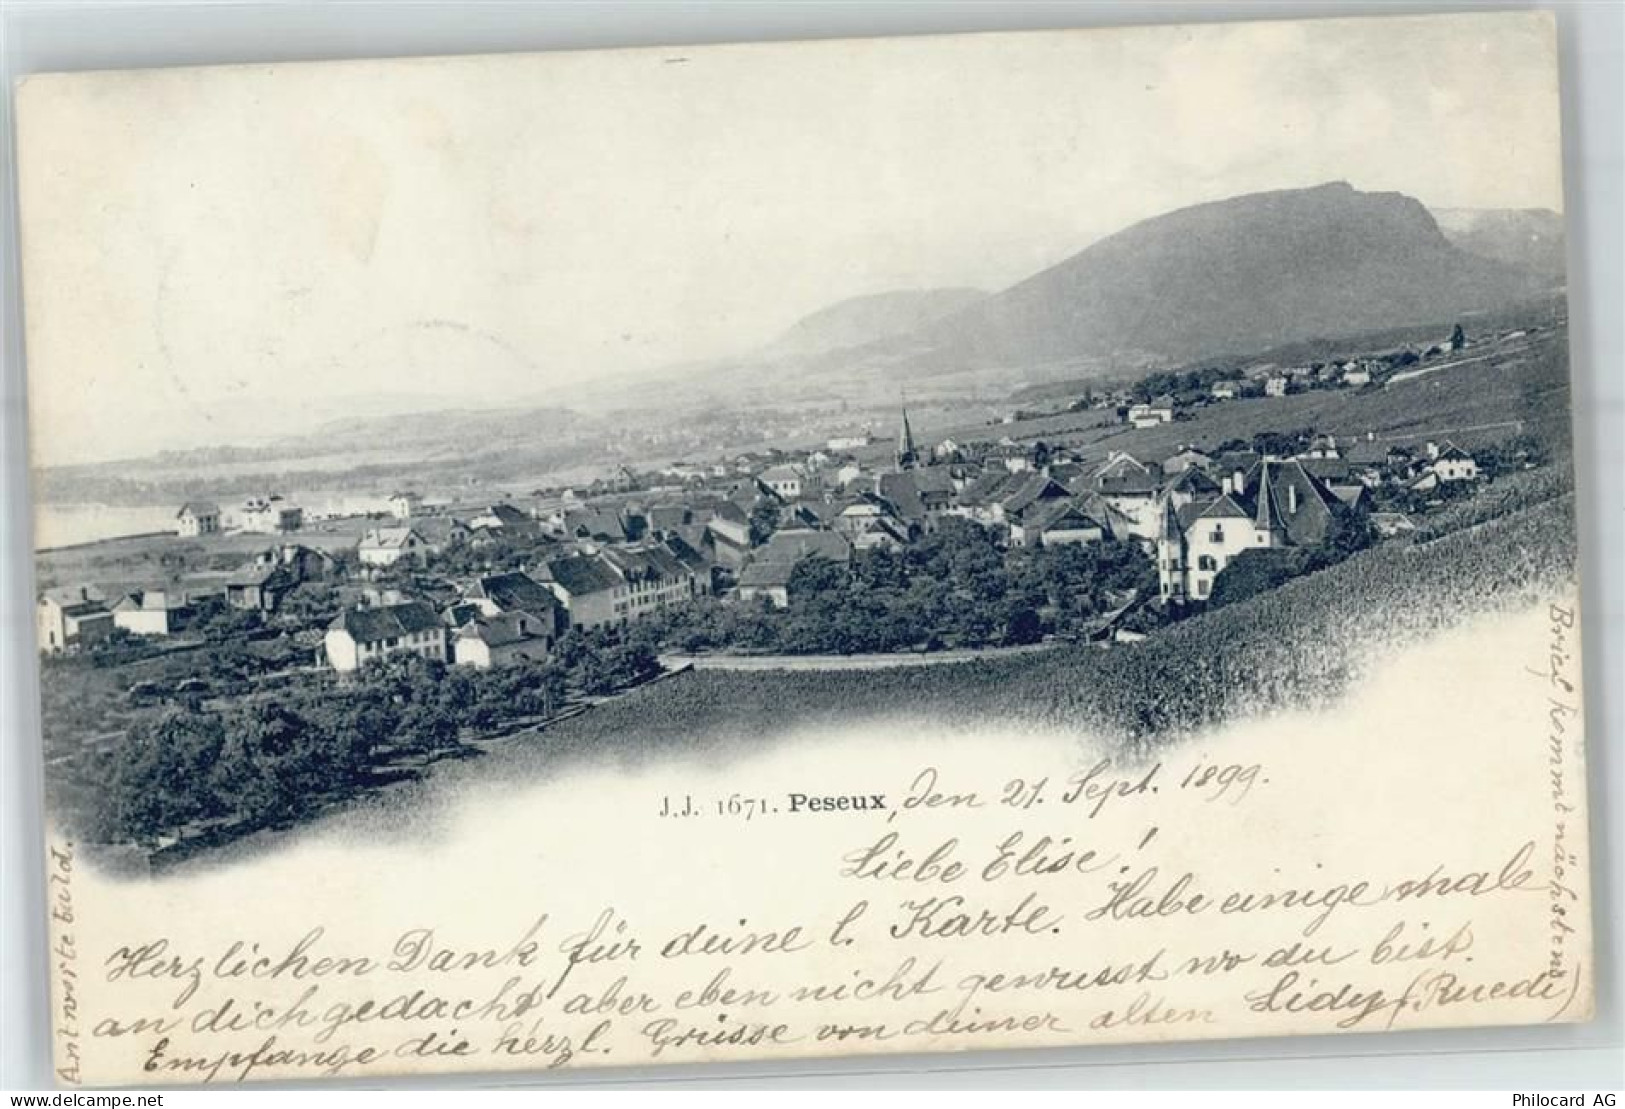 J.J. 1671. Peseux, den 21. Sept. 1899.
Liebe Elise!
Herzlichen Dank für deine l. Karte. Habe einige mal
an dich gedacht aber eben nicht gewusst wo du bist.
Empfange die herzl. Grüsse von deiner alten Lidy (Ruedi)
Antworte bald.
Brief kommt nächstens
delcampe.net
Philocard AG